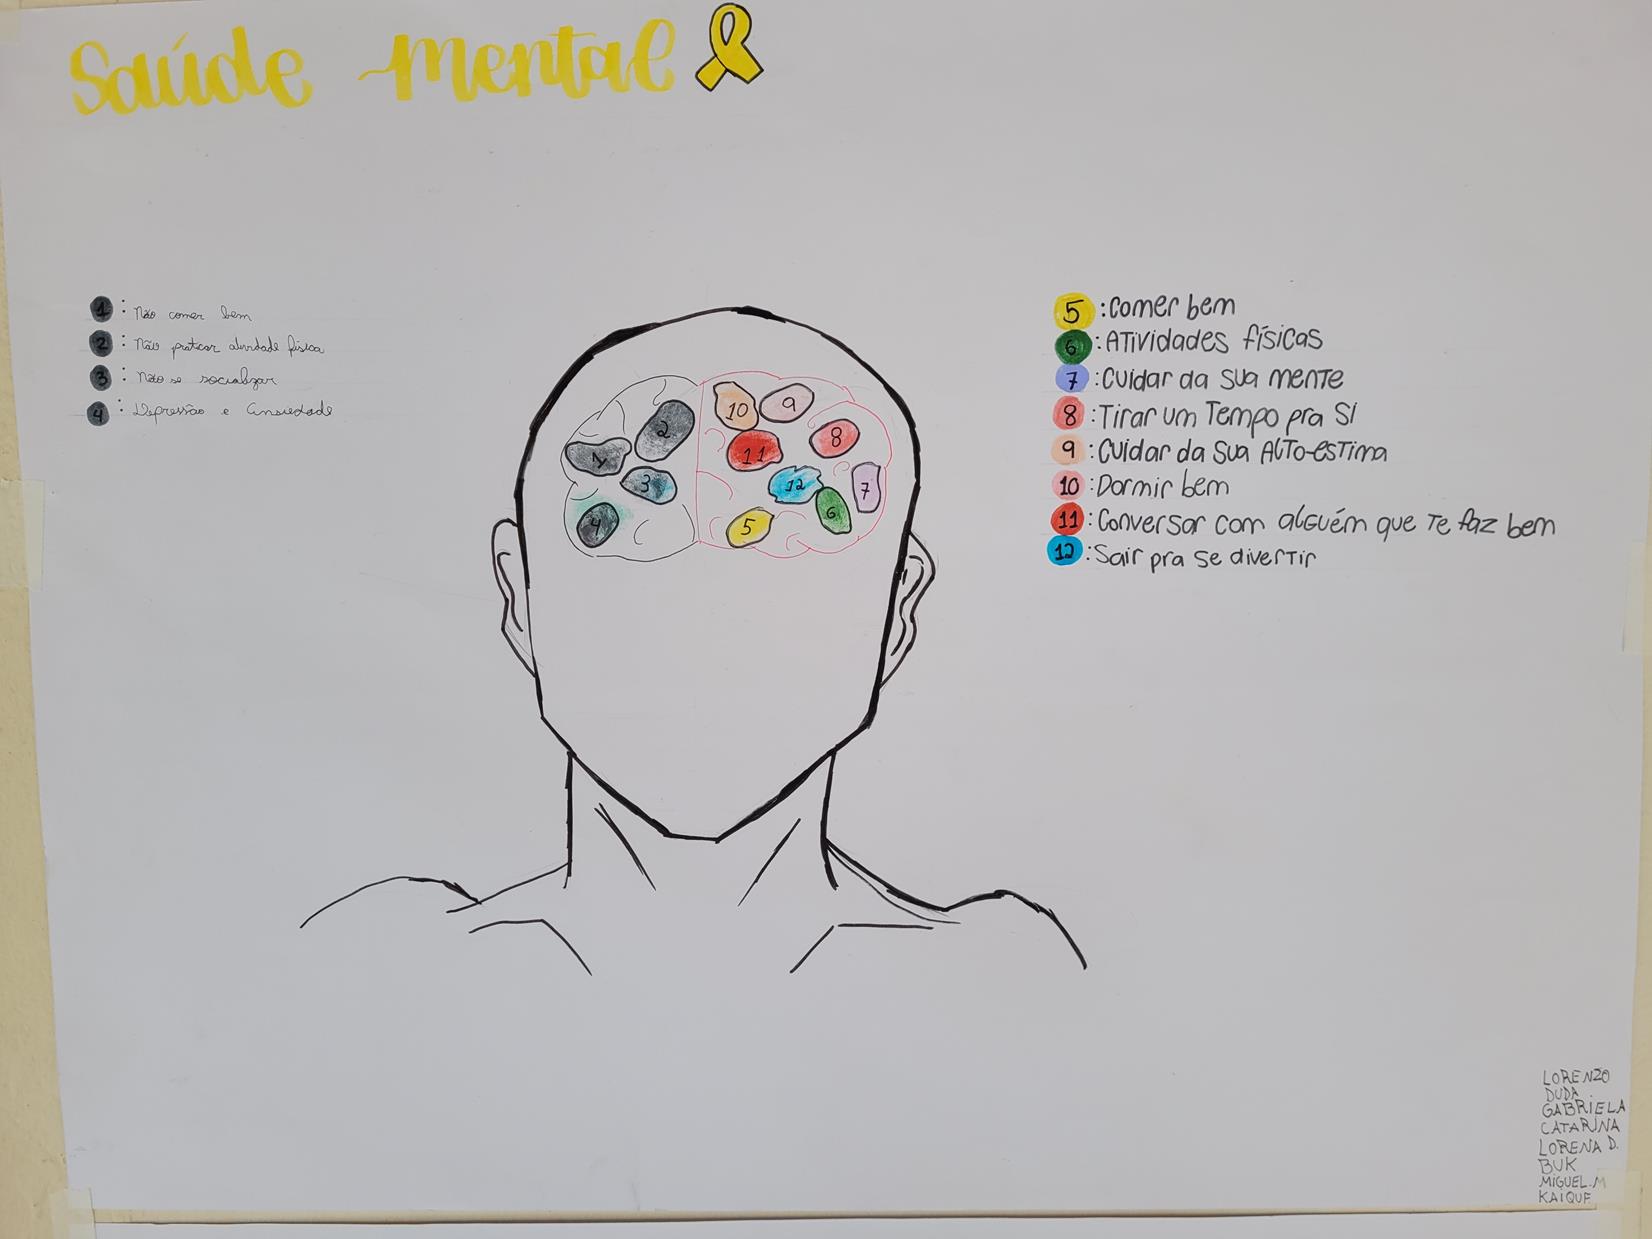 Saúde mental
1: Não comer bem
2: Não praticar atividade física
3: Não se socializar
4: Depressão e Ansiedade
5: Comer bem
6: Atividades físicas
7: Cuidar da sua mente
8: Tirar um tempo pra si
9: Cuidar da sua alto-estima
10: Dormir bem
11: Conversar com alguém que te faz bem
12: Sair pra se divertir
10 9
2 8
1 11
3 12 7
4 5 6
LORENZO
DUDA
GABRIELA
CATARINA
LORENA D.
BUK
MIGUEL.M
KAIQUE